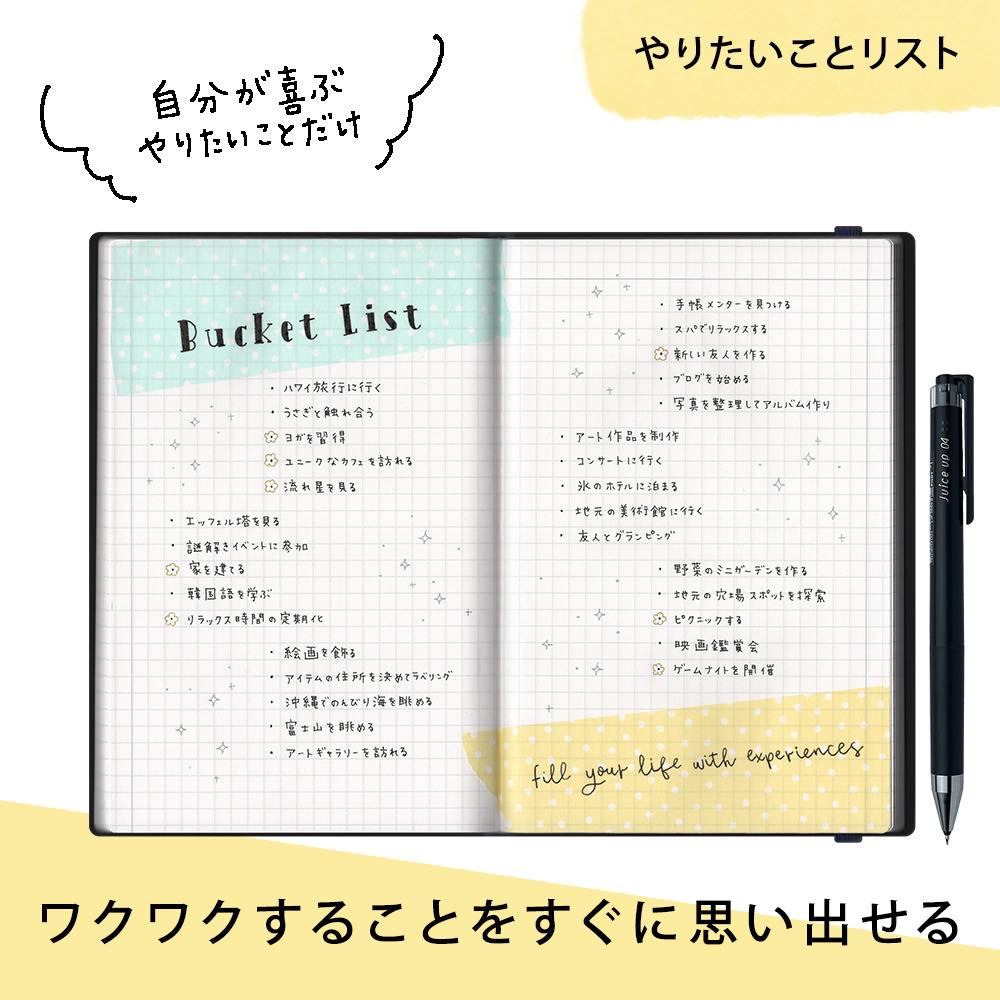 やりたいことリスト
自分が喜ぶ
やりたいことだけ
Bucket List
・ハワイ旅行に行く
・うさぎと触れ合う
ヨガを習得
ユニークなカフェを訪れる
流れ星を見る
・エッフェル塔を見る
・謎解きイベントに参加
家を建てる
・韓国語を学ぶ
リラックス時間の定期化
・絵画を飾る
・アイテムの住所を決めてラベリング
・沖縄でのんびり海を眺める
・富士山を眺める
・アートギャラリーを訪れる
・手帳メンターを見つける
・スパでリラックスする
新しい友人を作る
・ブログを始める
・写真を整理してアルバム作り
・アート作品を制作
・コンサートに行く
・氷のホテルに泊まる
・地元の美術館に行く
・友人とグランピング
・野菜のミニガーデンを作る
・地元の穴場スポットを探索
ピクニックする
・映画鑑賞会
ゲームナイトを開催
fill your life with experiences
Juice up 04
ワクワクすることをすぐに思い出せる